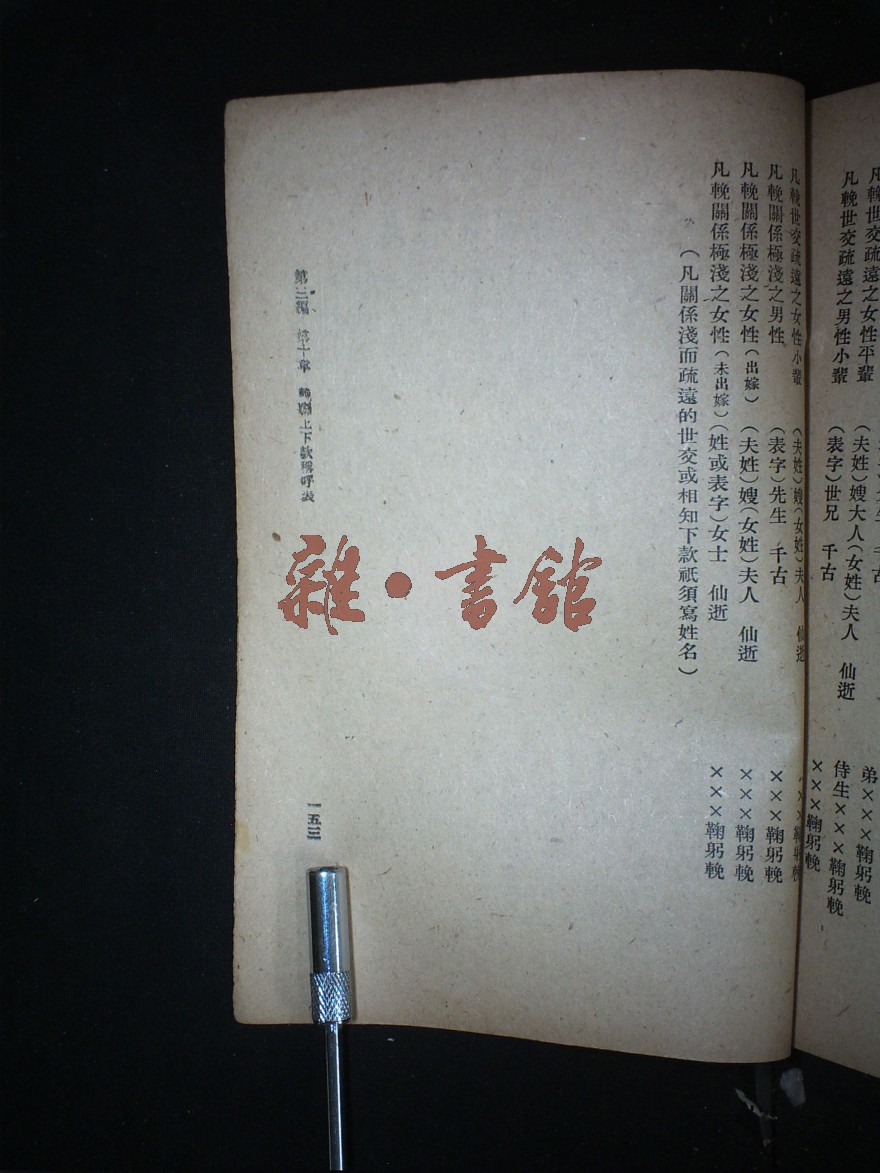 凡輓世交疏遠之女性平輩　（夫姓）嫂大人（女姓）夫人　仙逝　弟×××鞠躬輓
凡輓世交疏遠之男性小輩　（表字）世兄　千古　侍生×××鞠躬輓
×××鞠躬輓
凡輓世交疏遠之女性小輩　（夫姓）嫂（女姓）夫人　仙逝　×××鞠躬輓
凡輓關係極淺之男性　（表字）先生　千古　×××鞠躬輓
凡輓關係極淺之女性（出嫁）　（夫姓）嫂（女姓）夫人　仙逝　×××鞠躬輓
凡輓關係極淺之女性（未出嫁）（姓或表字）女士　仙逝　×××鞠躬輓
（凡關係淺而疏遠的世交或相知下款祇須寫姓名）
第三編　第十章　輓聯上下款稱呼表
一五三
雜・書館